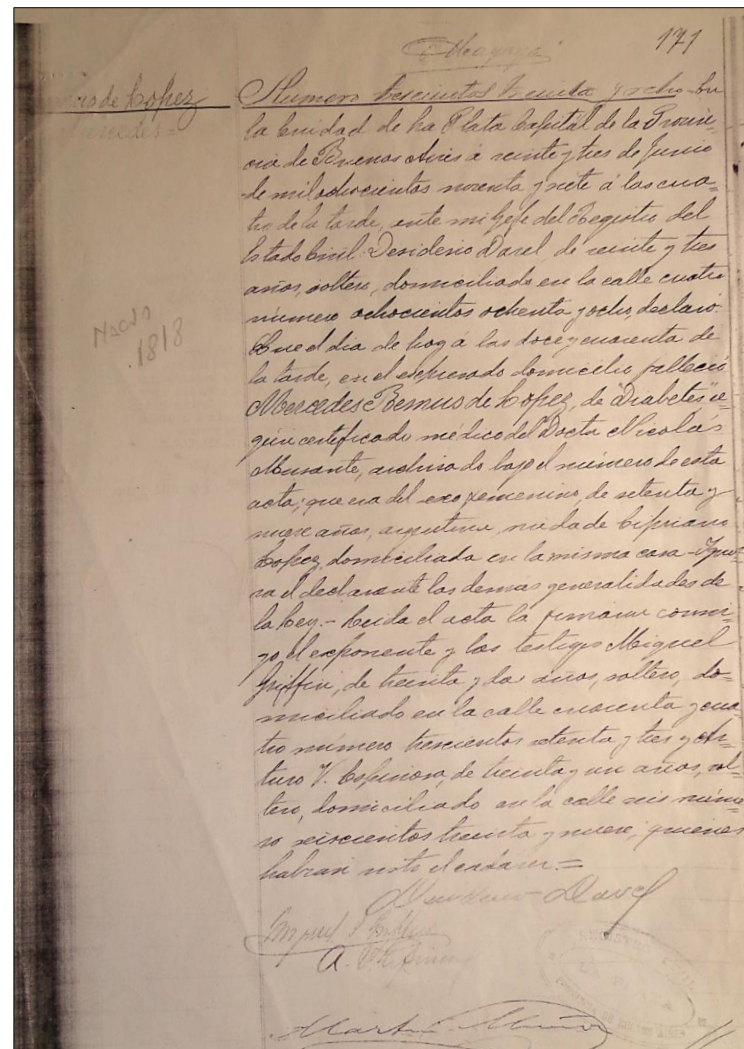 171
de Lopez
Mercedes =
Numero trescientos treinta y ocho - En
la Ciudad de La Plata Capital de la Provin=
cia de Buenos Aires á veinte y tres de Junio
de mil ochocientos noventa y siete á las cua=
tro de la tarde, ante mi Jefe del Registro del
Estado Civil: Desiderio Davel de veinte y tres
años, soltero, domiciliado en la calle cuatro
número ochocientos ochenta y ocho, declaró:
Que el dia de hoy á las doce y cuarenta de
la tarde, en el expresado domicilio falleció
Mercedes de Lopez, de "Diabetes" se=
gún certificado médico del Doctor Nicolás
Murante, archivado bajo el número de esta
acta; que era del sexo femenino, de setenta y
nueve años, argentina, viuda de Cipriano
Lopez, domiciliada en la misma casa - Igno=
ra el declarante las demás generalidades de
la Ley. - Leida el acta la firmaron conmi=
go, el exponente y los testigos Miguel
Griffin, de treinta y dos años, soltero, do=
miciliado en la calle cuarenta y cua=
tro número trescientos setenta y tres y Ar=
turo V. Espinosa, de treinta y un años, sol=
tero, domiciliado en la calle seis núme=
ro seiscientos treinta y nueve, quienes
habian visto el cadáver. =
Nació
1818
Desiderio Davel
Miguel
A. V. Espinosa
REGISTRO CIVIL
LA PLATA
Martin